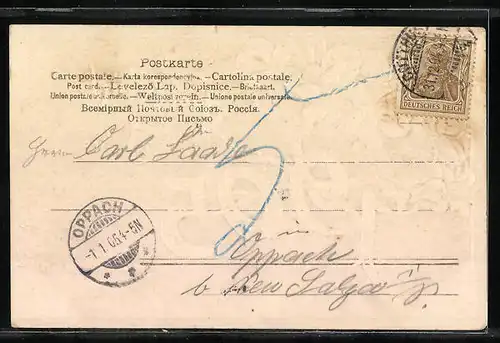 Postkarte
Carte postale. — Karta korespondencyjna. — Cartolina postale.
Post card. — Levelező Lap. Dopisnice. — Briefkaart.
Union postale universelle. — Weltpostverein. — Unione postale universale.
Всемірный Почтовый Союзъ. Россія.
Открытое Письмо
DEUTSCHES REICH
An
Herrn Carl
OPPACH
-1.1.06.4-5N
in
Oppach
b. Neu Salza